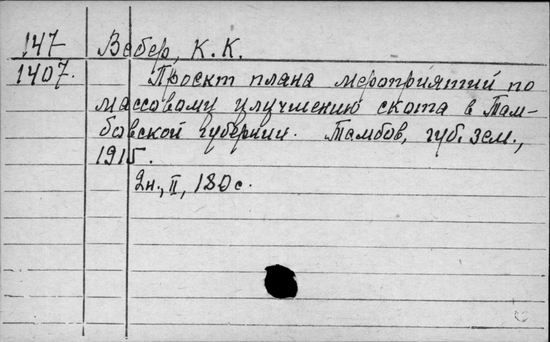 147 Вебер, К. К.
1407. Проект плана мероприятий по
массовому улучшению скота в Там-
бовской губернии. Тамбов, губ. зем.,
1915.
2н., II, 180 с.